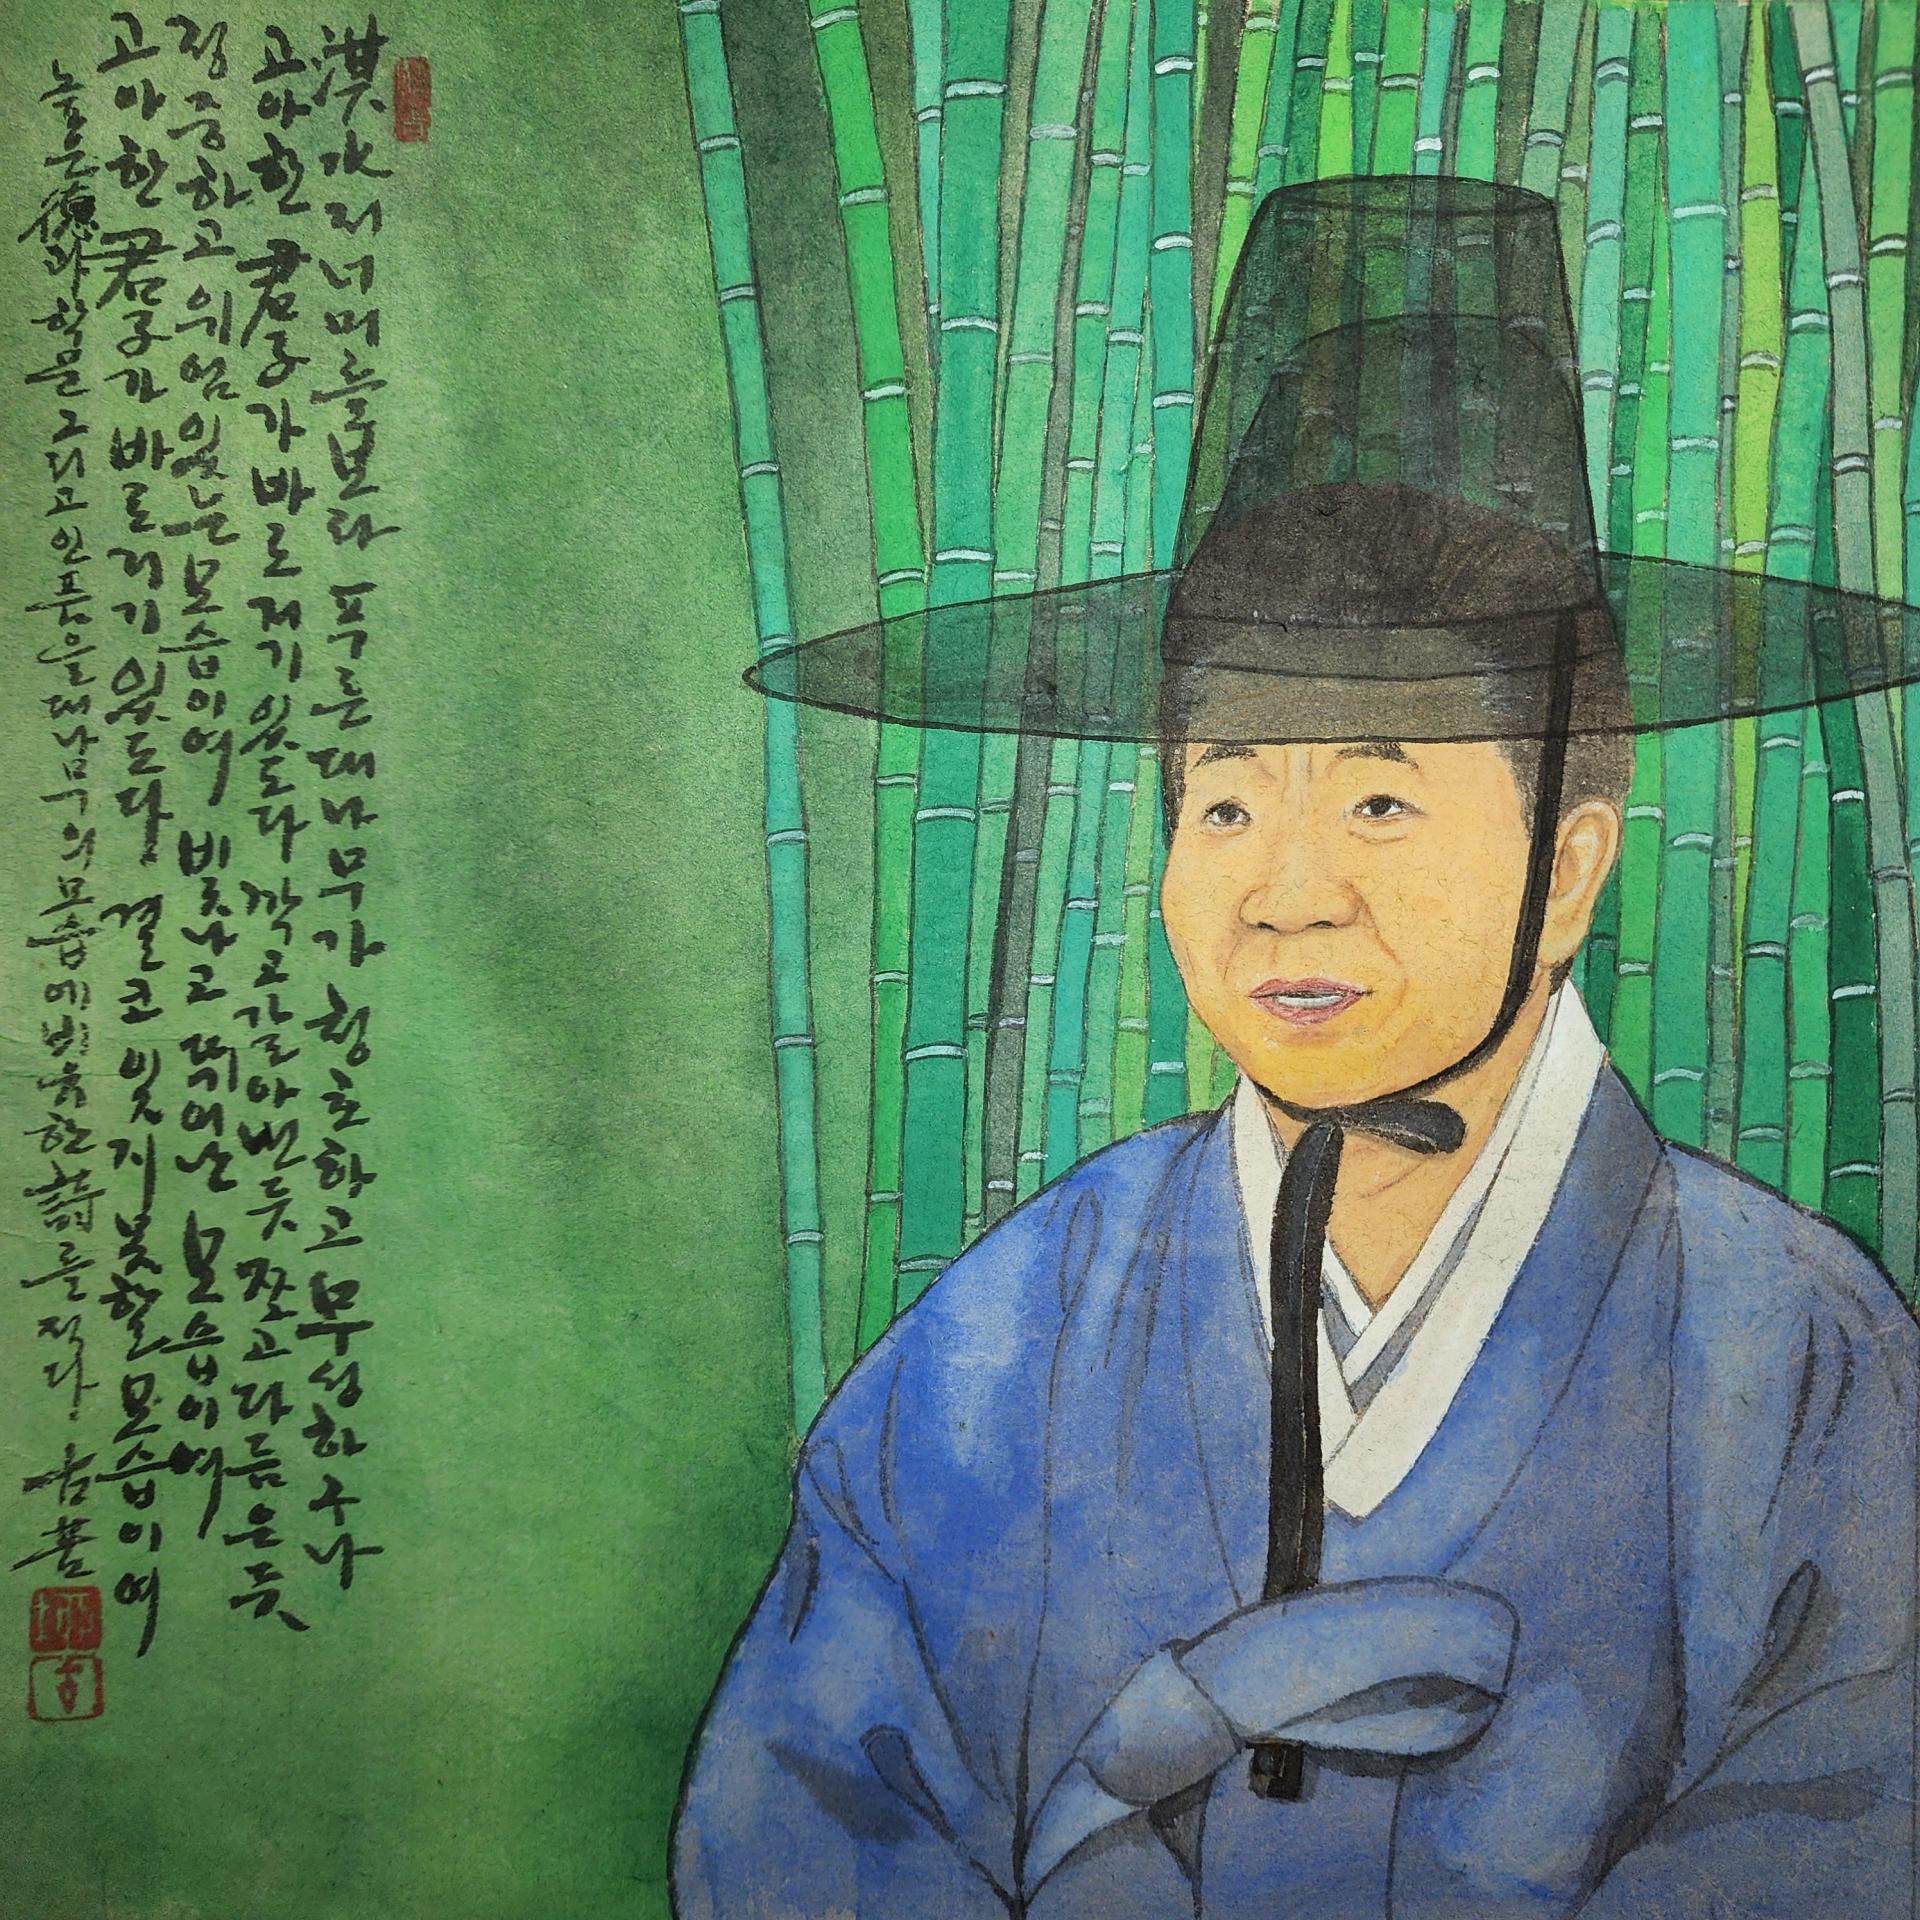 淇水저너머를보라 푸른대나무가 청초하고 무성하구나
고아한 君子가 바로 저기 있도다 깍고 갈아 낸듯 쪼고 다듬은듯
정중하고 위엄있는 모습이여 빛나고 뛰어난 모습이여
고아한 君子가 바로 저기 있도다 결코 잊지 못할 모습이여
높은 德과 학문 그리고 인품을 대나무의 모습에 비유한 詩를 적다